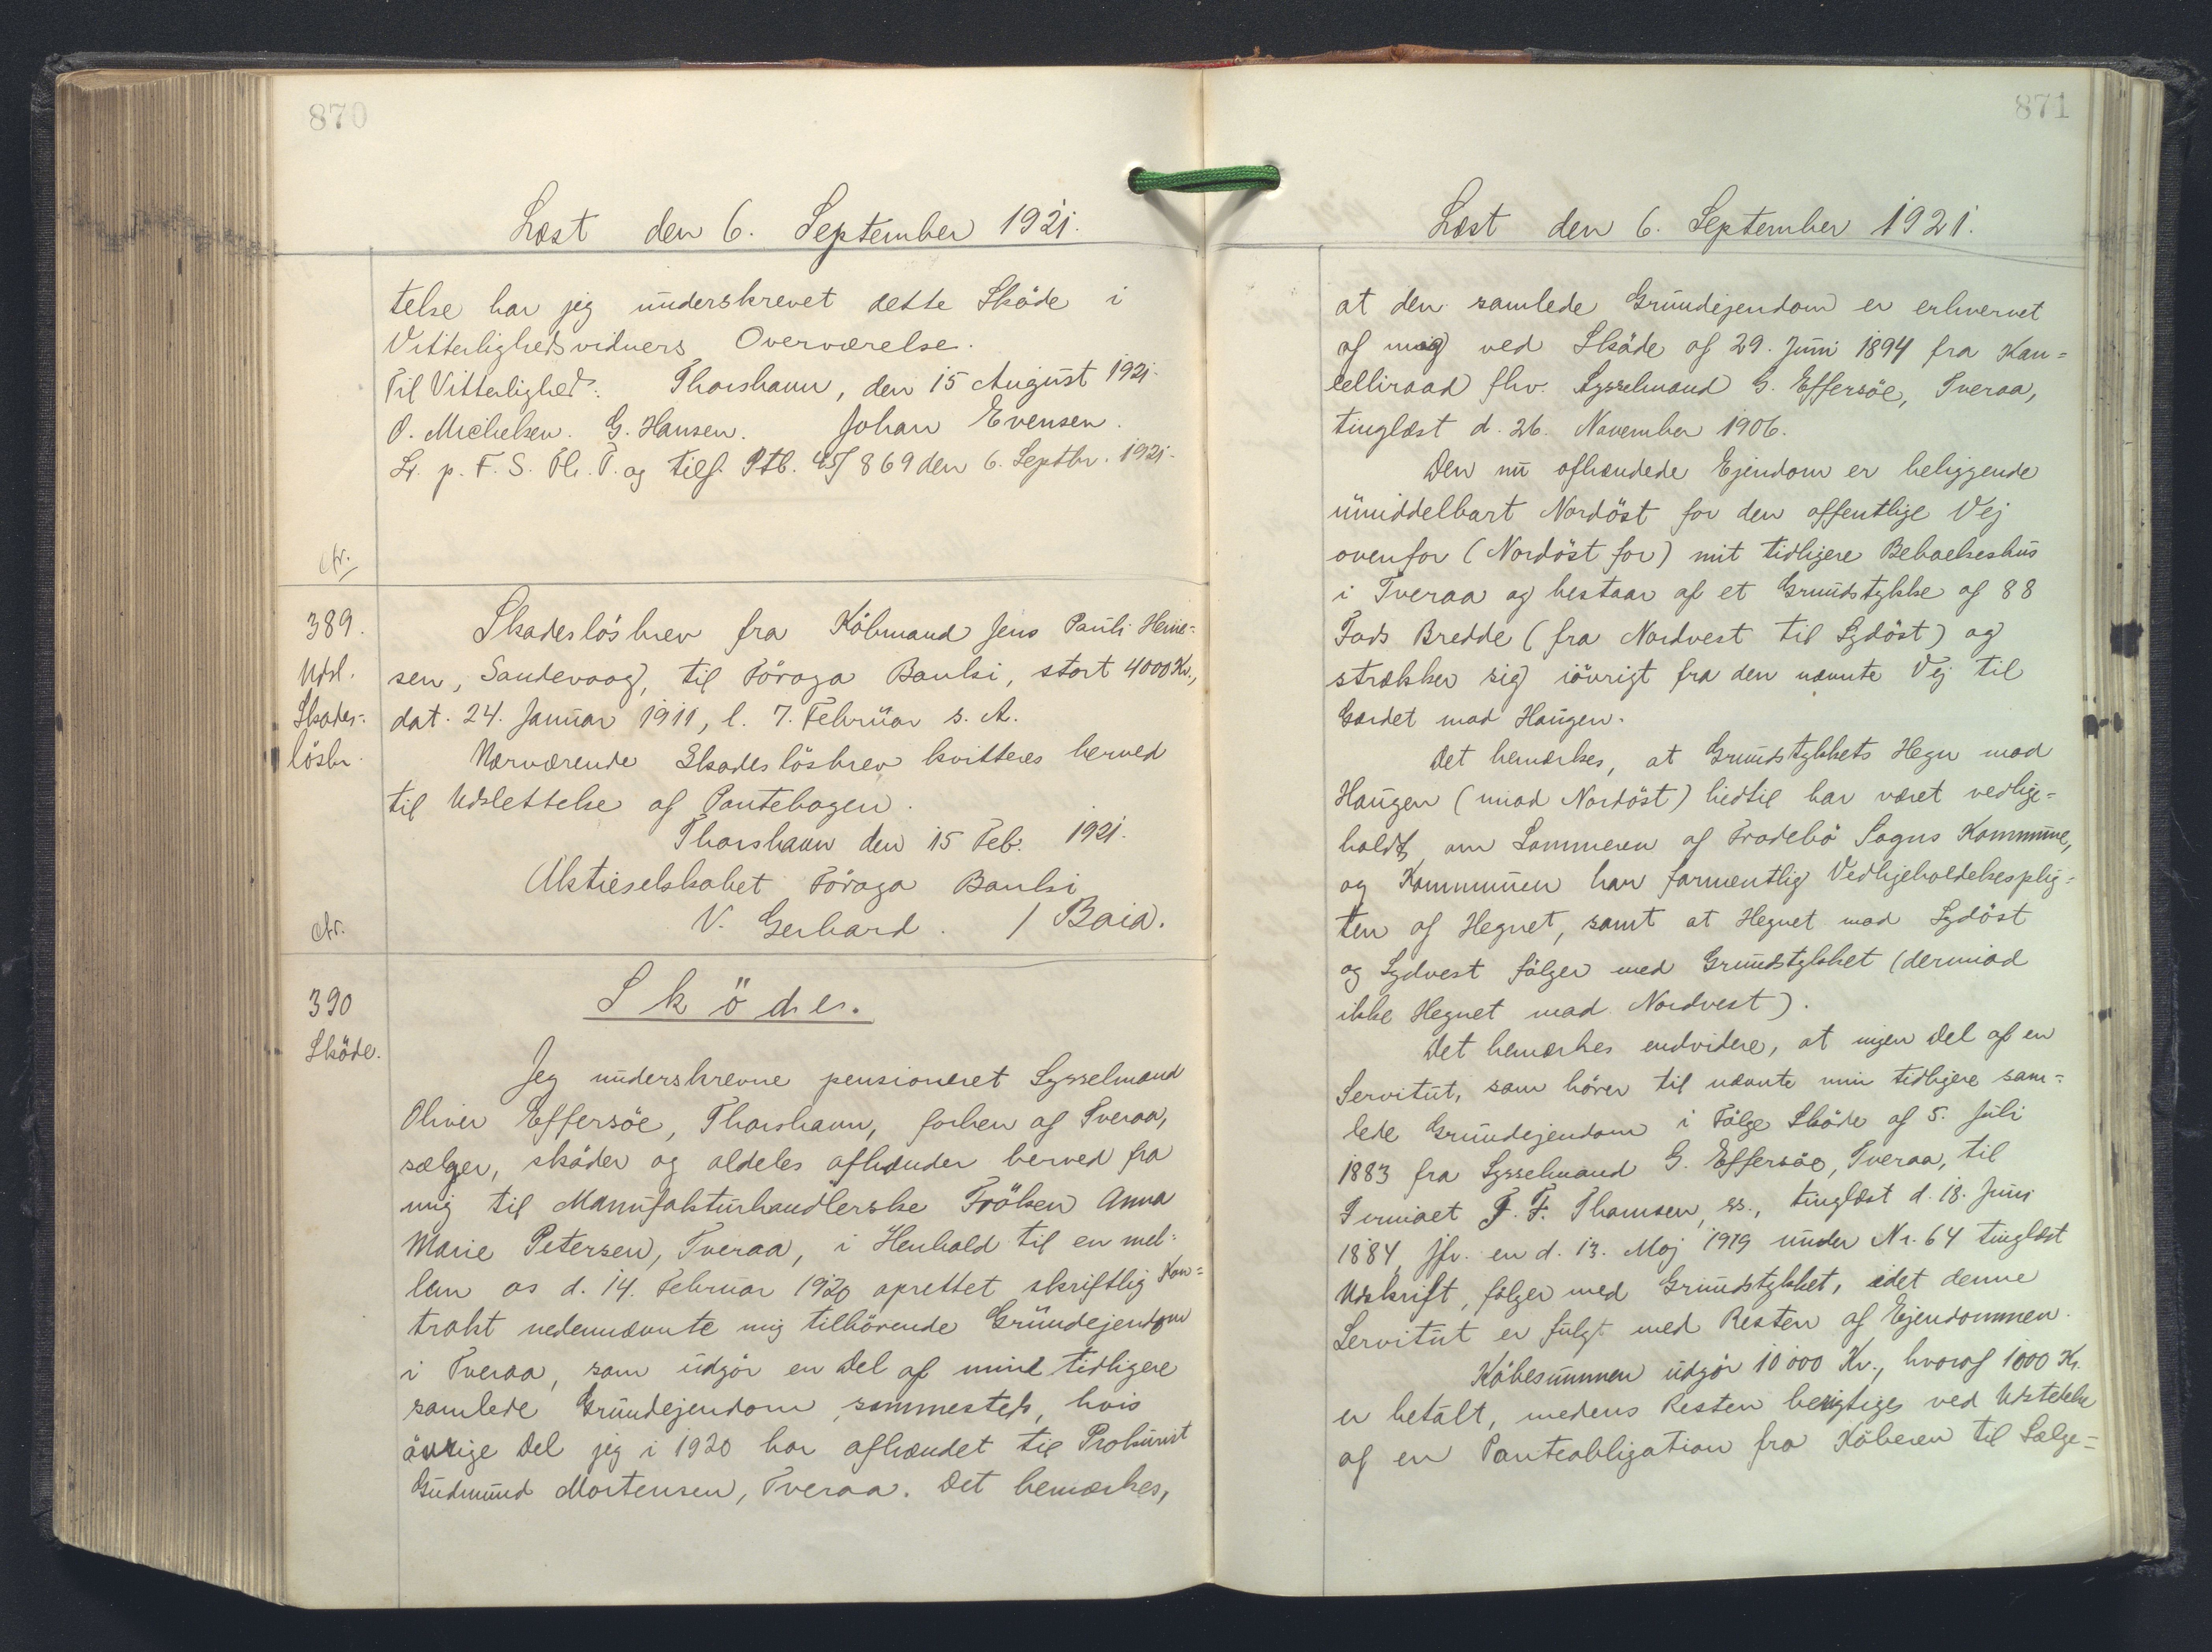 870
Læst den 6. September 1921.
telse har jeg underskrevet dette Sköde i
Vitterlighedsvidners Overværelse.
Til Vitterlighed: Thorshavn, den 15 August 1921.
O. Michelsen. G. Hansen. Johan Evensen.
L. p. F. S. Th. T. og tilf. Ptb. 45/869 den 6. Septbr. 1921.
389.
Udsl.
Skades-
lösbr.
Skadeslösbrev fra Köbmand Jens Pauli Heine-
sen, Sandevaag, til Föroya Banki, stort 4000 Kr.,
dat. 24. Januar 1911, l. 7. Februar s. A.
Nærværende Skadeslösbrev kvitteres herved
til Udslettelse af Pantebogen.
Thorshavn den 15 Feb. 1921.
Aktieselskabet Föroya Banki
V. Gerhard. / Baia.
390
Sköde.
Sköde.
Jeg underskrevne pensioneret Sysselmand
Oliver Effersöe, Thorshavn, forhen af Tveraa,
sælger, sköder og aldeles afhænder herved fra
mig til Manufakturhandlerske Fröken Anna
Marie Petersen, Tveraa, i Henhold til en mel-
lem os d. 14. Februar 1920 oprettet skriftlig Kon-
trakt nedennævnte mig tilhörende Grundejendom
i Tveraa, som udgör en Del af mine tidligere
samlede Grundejendom sammesteds, hvis
övrige Del jeg i 1920 har afhændet til Prokurist
Gudmund Mortensen, Tveraa. Det bemærkes,
871
Læst den 6. September 1921.
at den samlede Grundejendom er erhvervet
af mig ved Sköde af 29. Juni 1894 fra Kan-
celliraad fhv. Sysselmand G. Effersöe, Tveraa,
tinglæst d. 26. November 1906.
Den nu afhændede Ejendom er beliggende
umiddelbart Nordöst for den offentlige Vej
ovenfor (Nordöst for) mit tidligere Beboelseshus
i Tveraa og bestaar af et Grundstykke af 88
Fods Bredde (fra Nordvest til Sydöst) og
strækker sig iövrigt fra den nævnte Vej til
Gærdet mod Haugen.
Det bemærkes, at Grundstykkets Hegn mod
Haugen (mod Nordöst) hidtil har været vedlige-
holdt om Sommeren af Frodebö Sogns Kommune,
og Kommunen har formentlig Vedligeholdelsesplig-
ten af Hegnet, samt at Hegnet mod Sydöst
og Sydvest fölger med Grundstykket (derimod
ikke Hegnet mod Nordvest).
Det bemærkes endvidere, at ingen Del af en
Servitut, som hörer til nævnte min tidligere sam-
lede Grundejendom i Fölge Sköde af 5. Juli
1883 fra Sysselmand G. Effersöe, Tveraa, til
Firmaet T. F. Thomsen, ss., tinglæst d. 18. Juni
1884, jfr. en d. 13. Maj 1919 under Nr. 64 tinglæst
Udskrift, fölger med Grundstykket, idet denne
Servitut er fulgt med Resten af Ejendommen.
Köbesummen udgör 10 000 Kr., hvoraf 1000 Kr.
er betalt, medens Resten berigtiges ved Udstedelse
af en Panteobligation fra Köberen til Sælge-